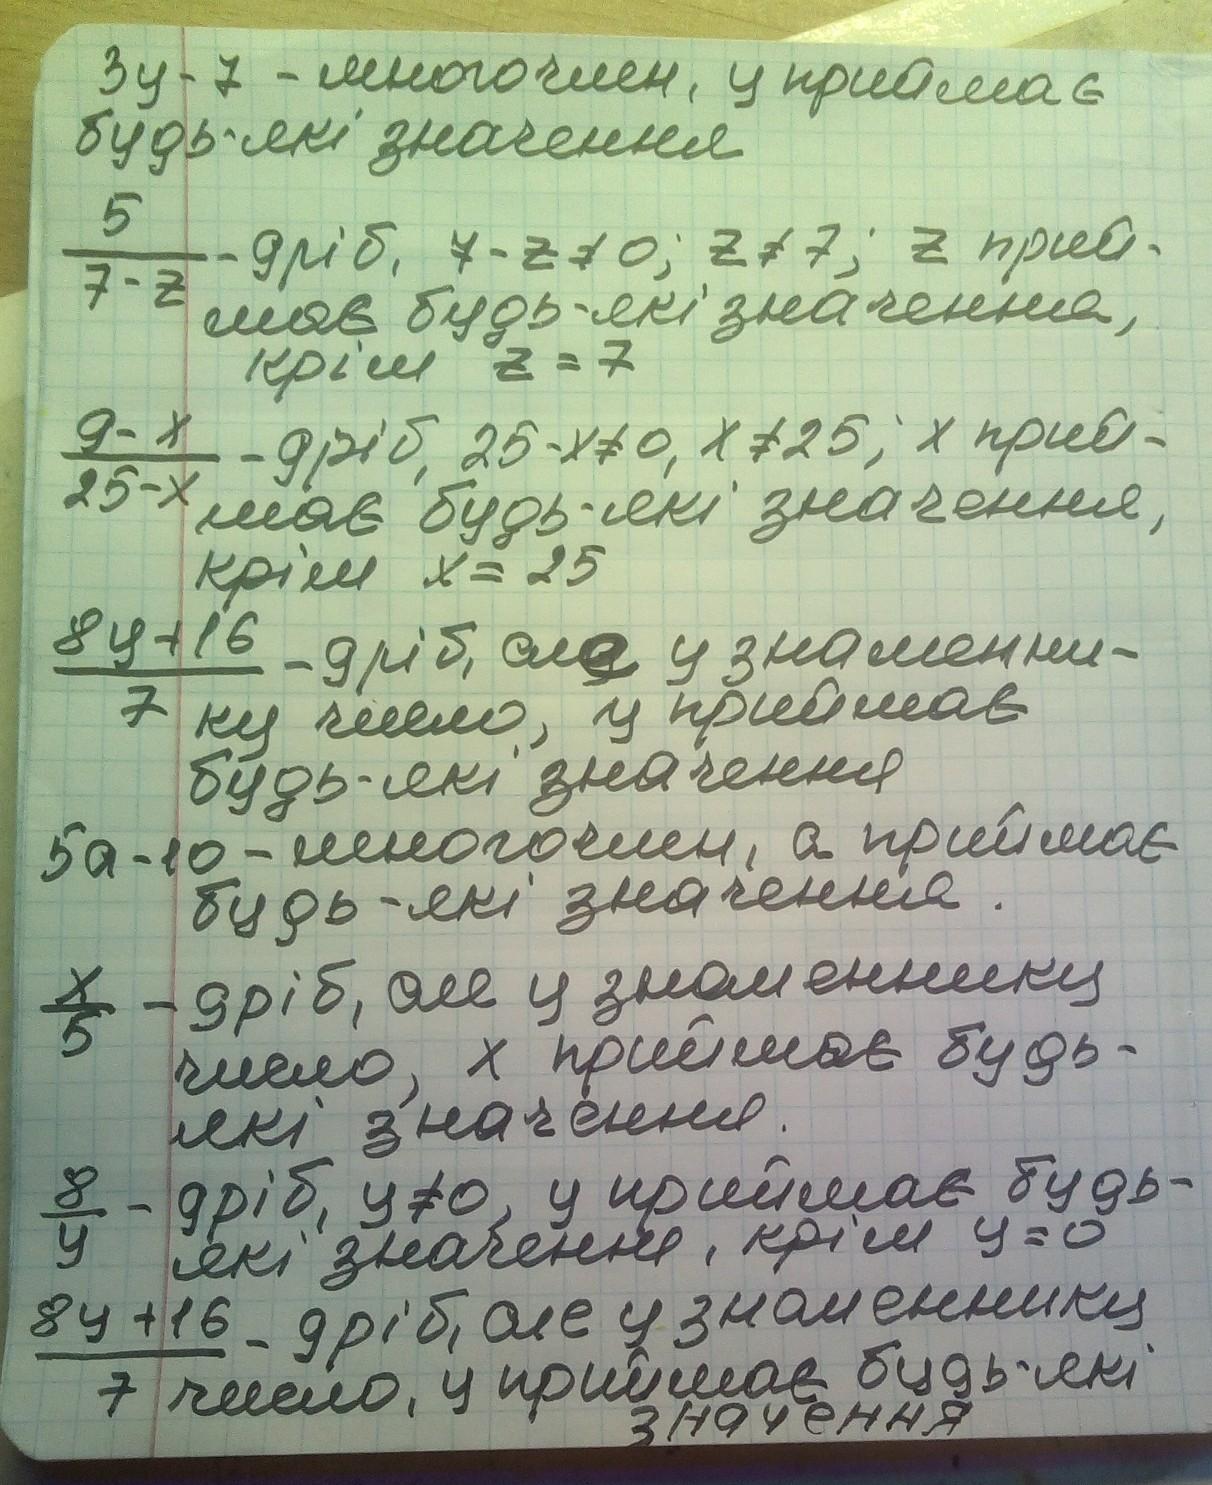 3y - 7 - многочлен, y приймає
будь-які значення
5/(7-z) - дріб, 7-z≠0; z≠7; z прий-
має будь-які значення,
крім z = 7
(9-x)/(25-x) - дріб, 25-x≠0, x≠25; x прий-
має будь-які значення,
крім x = 25
(8y+16)/7 - дріб, але у знаменни-
ку число, y приймає
будь-які значення
5a-10 - многочлен, a приймає
будь-які значення.
x/5 - дріб, але у знаменнику
число, x приймає будь-
які значення.
8/y - дріб, y≠0, y приймає будь-
які значення, крім y=0
(8y+16)/7 - дріб, але у знаменнику
число, y приймає будь-які
значення